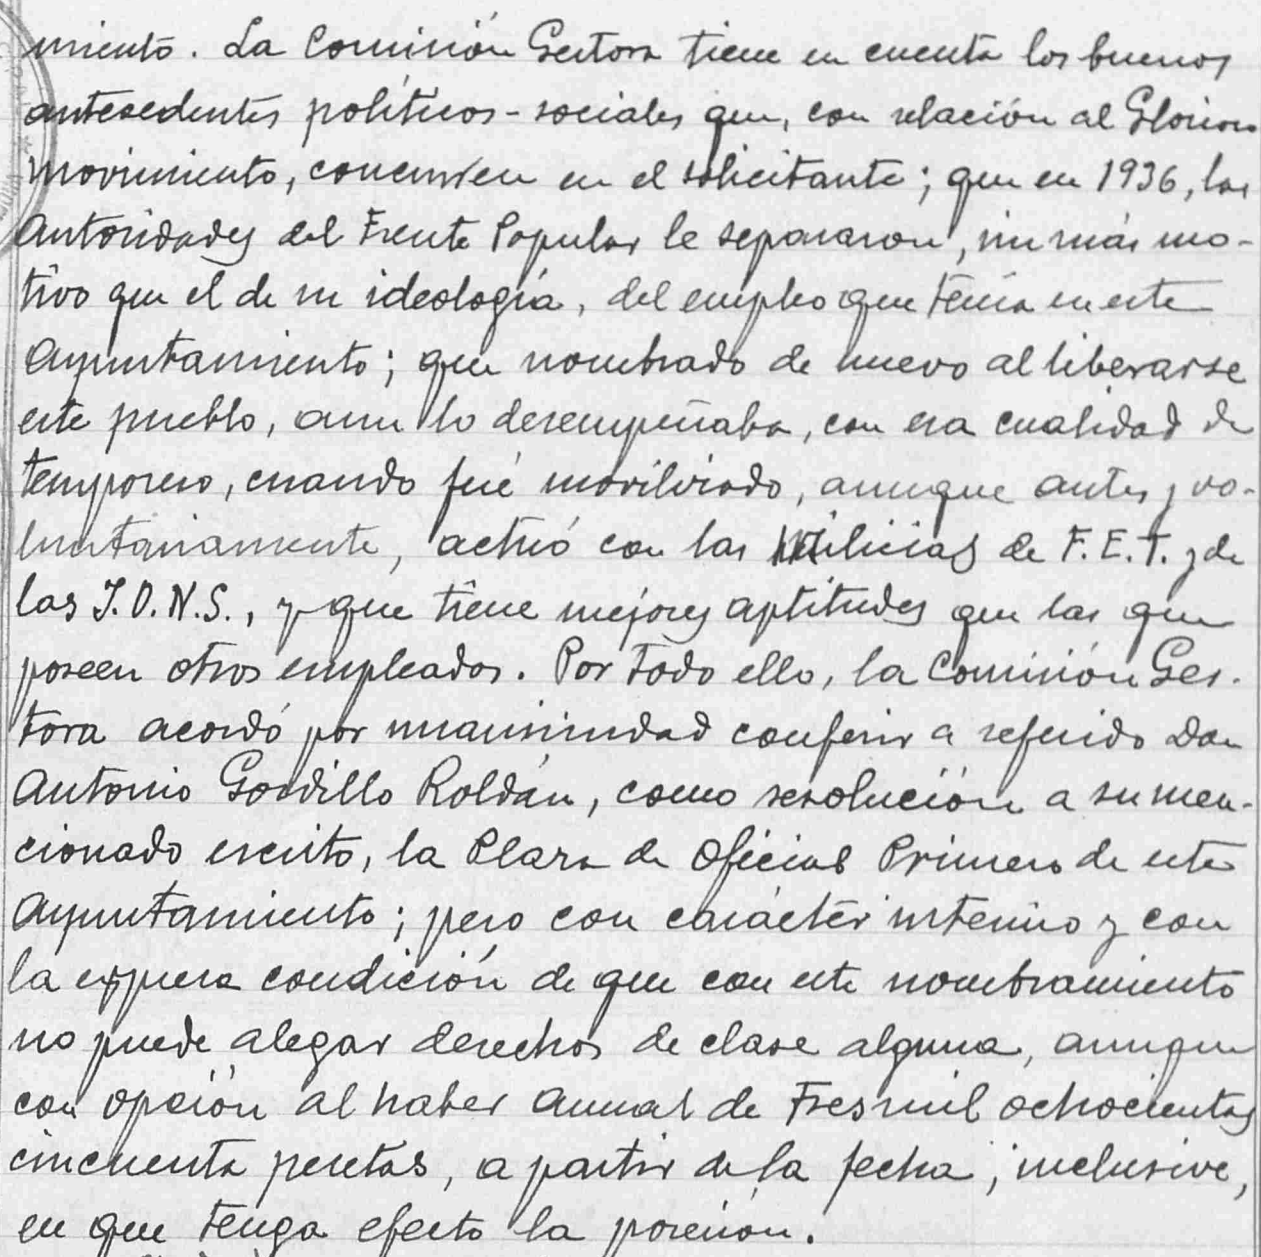 miento. La Comisión Gestora tiene en cuenta los buenos
antecedentes políticos-sociales que, con relación al Glorioso
Movimiento, concurren en el solicitante; que en 1936, las
Autoridades del Frente Popular le separaron, sin más mo-
tivo que el de su ideología, del empleo que tenía en este
Ayuntamiento; que nombrado de nuevo al liberarse
este pueblo, aun lo desempeñaba, con esa cualidad de
temporero, cuando fué movilizado, aunque antes y vo-
luntariamente, actuó con las Milicias de F.E.T. y de
las J.O.N.S., y que tiene mejores aptitudes que las que
poseen otros empleados. Por todo ello, la Comisión Ges-
tora acordó por unanimidad conferir a referido Don
Antonio Gordillo Roldán, como resolución a su men-
cionado escrito, la Plaza de Oficial Primero de este
Ayuntamiento; pero con carácter interino y con
la expresa condición de que con este nombramiento
no puede alegar derechos de clase alguna, aunque
con opción al haber anual de tres mil ochocientas
cincuenta pesetas, a partir de la fecha, inclusive,
en que tenga efecto la posesión.